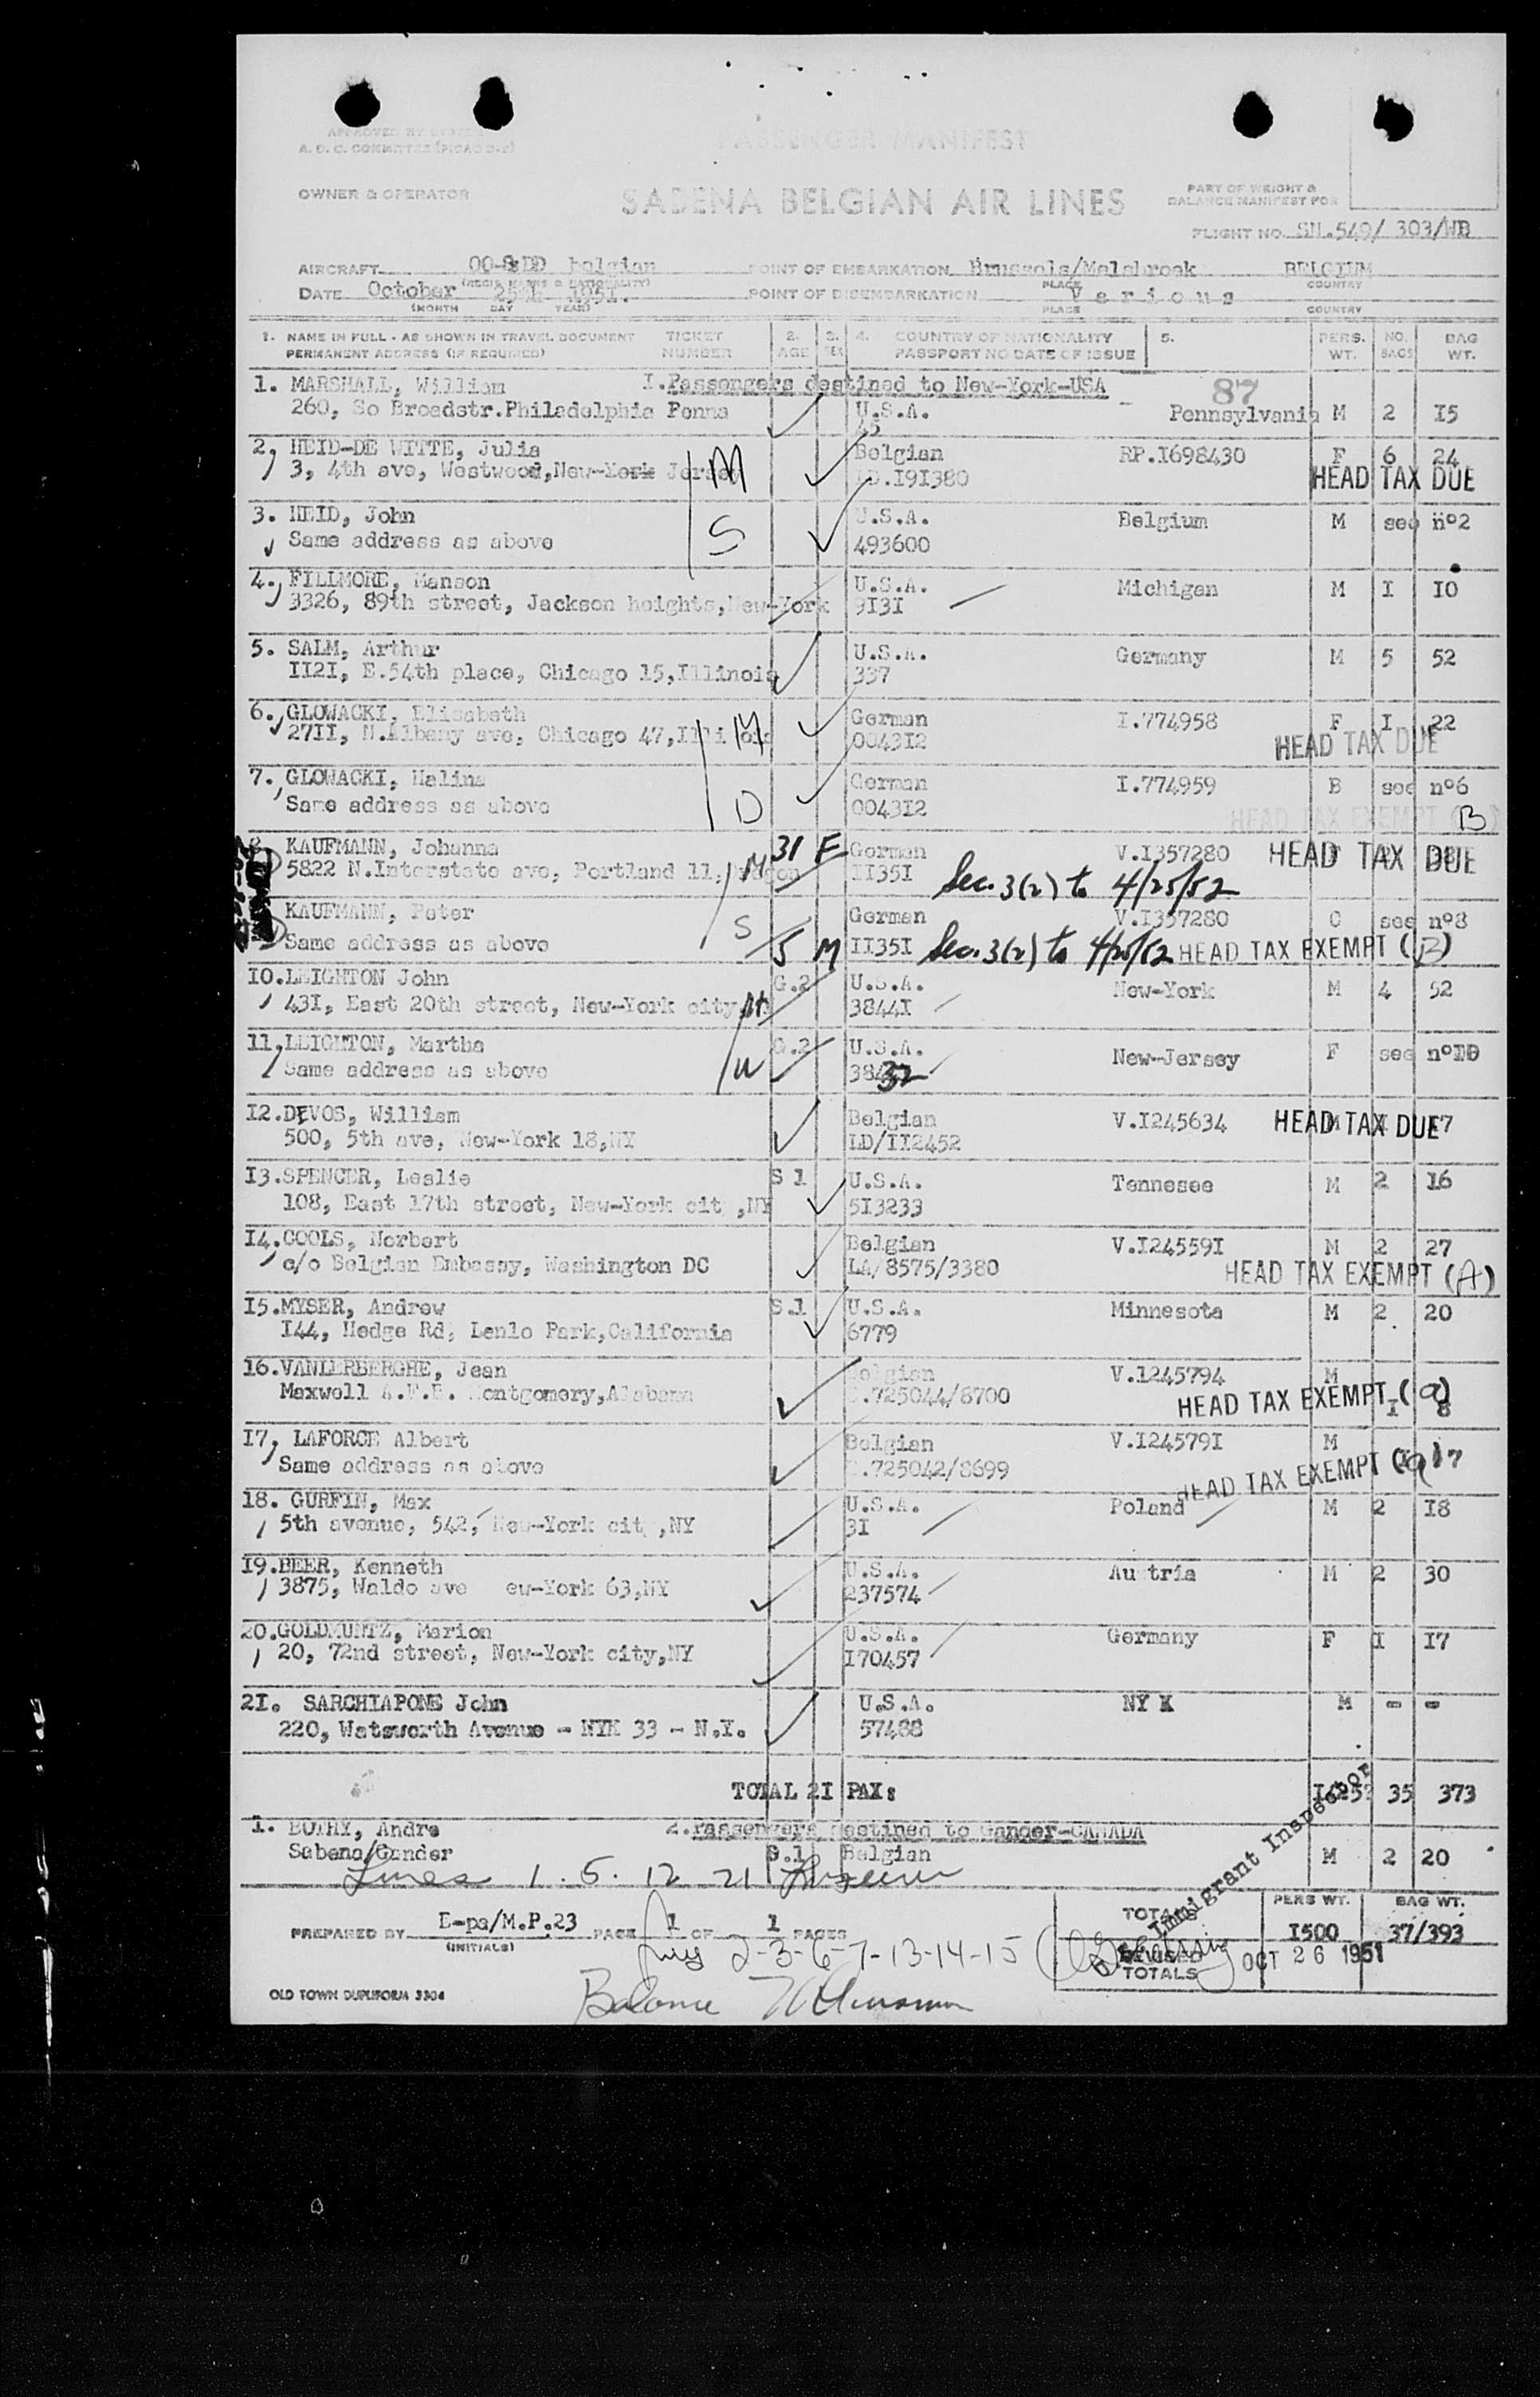 PASSENGER MANIFEST
A. D. C. COMMITTEE (PICAO
OWNER & OPERATOR
SABENA BELGIAN AIR LINES
PART OF WEIGHT &
BALANCE MANIFEST FOR
FLIGHT NO. SN.549/ 303/WB
AIRCRAFT belgian POINT OF EMBARKATION Brussels/Melsbroek BELGIUM
(REGIS MARKS & NATIONALITY) PLACE COUNTRY
DATE October 25th 1951. POINT OF DISEMBARKATION V a r i o u s
(MONTH DAY YEAR) PLACE COUNTRY
1. NAME IN FULL - AS SHOWN IN TRAVEL DOCUMENT TICKET 2. 3. 4. COUNTRY OF NATIONALITY 5. PERS. NO. BAG
PERMANENT ADDRESS (IF REQUIRED) NUMBER AGE SEX PASSPORT NO DATE OF ISSUE WT. BAGS WT.
1. MARSHALL, William I.Passengers destined to New-York-USA 87
260, So Broadstr.Philadelphia Penna U.S.A. Pennsylvania M 2 I5
45
2. HEID-DE WITTE, Julia Belgian RP.I698430 F 6 24
3, 4th ave, Westwood,New-York Jersey M I9I380 HEAD TAX DUE
3. HEID, John U.S.A. Belgium M see nº2
Same address as above S 493600
4. FILLMORE, Manson U.S.A. Michigan M I I0
3326, 89th street, Jackson heights,New-York 9I3I
5. SALM, Arthur U.S.A. Germany M 5 52
II2I, E.54th place, Chicago 15,Illinois 337
6. GLOWACKI, Elisabeth German I.774958 F I 22
27II, N.Albany ave, Chicago 47,Illinois M 0043I2 HEAD TAX DUE
7. GLOWACKI, Halina German I.774959 B see nº6
Same address as above D 0043I2 HEAD TAX EXEMPT (B)
KAUFMANN, Johanna 31 F German V.I357280 HEAD TAX DUE
5822 N.Interstate ave, Portland 11, M II35I Sec. 3(2) to 4/25/52
KAUFMANN, Peter German V.I357280 C see nº8
Same address as above S 5 M II35I Sec. 3(2) to 4/25/52 HEAD TAX EXEMPT (B)
I0.LEIGHTON John G.2 U.S.A. New-York M 4 52
43I, East 20th street, New-York city H 3844I
11.LEIGHTON, Martha G.2 U.S.A. New-Jersey F see nºI0
Same address as above W 32
I2.DEVOS, William Belgian V.I245634 HEAD TAX DUE
500, 5th ave, New-York 18,NY LD/II2452
I3.SPENCER, Leslie S 1 U.S.A. Tennesee M 2 I6
108, East 17th street, New-York cit ,NY 5I3233
I4.COOLS, Norbert Belgian V.I24559I M 2 27
c/o Belgian Embassy, Washington DC LA/8575/3380 HEAD TAX EXEMPT (A)
I5.MYSER, Andrew S.1 U.S.A. Minnesota M 2 20
I44, Hedge Rd, Lenlo Park,California 6779
16.VANLERBERGHE, Jean Belgian V.1245794 M
Maxwell A.F.B. Montgomery,Alabama .725044/8700 HEAD TAX EXEMPT (a) I 8
I7. LAFORCE Albert Belgian V.I24579I M
Same address as above .725042/8699 HEAD TAX EXEMPT (a)
18. GURFIN, Max U.S.A. Poland M 2 I8
5th avenue, 542, New-York cit ,NY 3I
I9.BEER, Kenneth U.S.A. Au tria M 2 30
3875, Waldo ave ew-York 63,NY 237574
20.GOLDMUNTZ, Marion U.S.A. Germany F I I7
20, 72nd street, New-York city,NY I70457
2I. SARCHIAPONE John U.S.A. NY K M - -
220, Watsworth Avenue - NYK 33 - N.Y. 57488
TOTAL 2I PAX: 35 373
1. BOTHY, Andre 2.Passengers destined to Gander-CANADA
Sabena/Gander S.1 Belgian M 2 20
Lines 1. 5. 12 21
PREPARED BY E-ps/M.P.23 PAGE 1 OF 1 PAGES
(INITIALS)
TOTALS PERS WT. BAG WT.
I500 37/393
Immigrant Inspector
2-3-6-7-13-14-15
REVISED TOTALS OCT 26 1951
OLD TOWN DUPLIFORM 3304
Balance